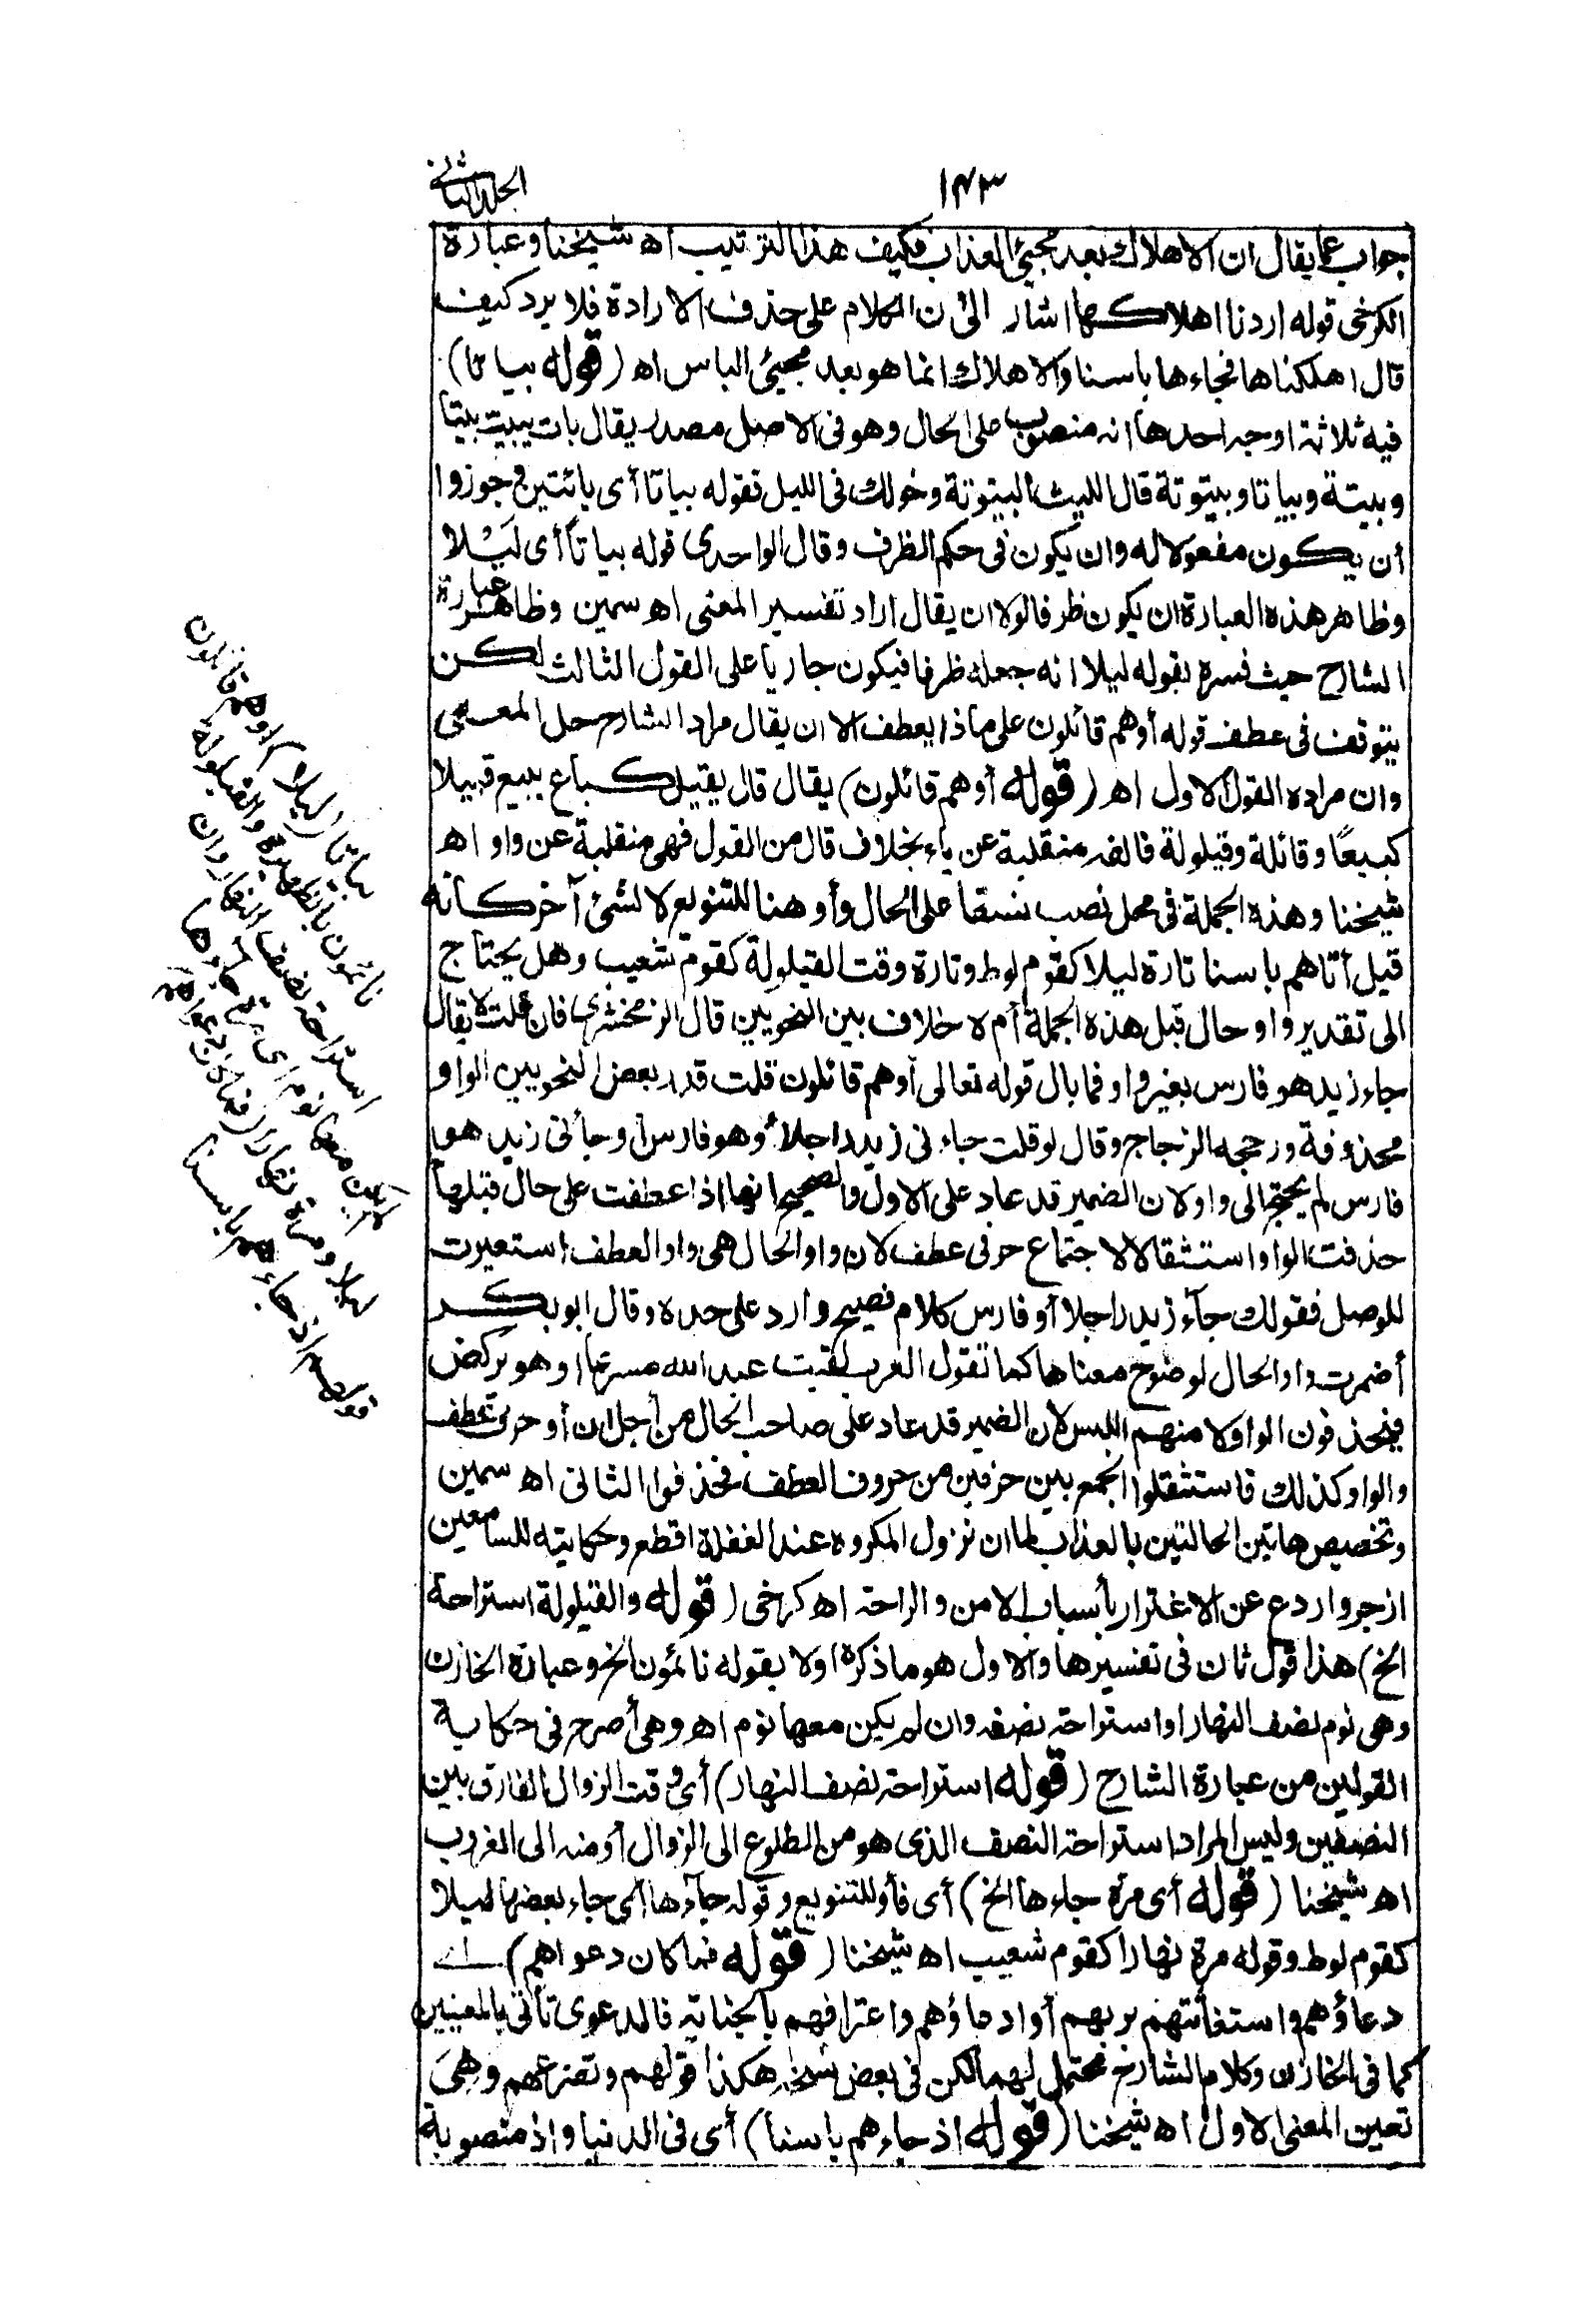 ١٤٣
الجلد الثاني
جواب عما يقال ان الاهلاك بعد مجيئ العذاب فكيف هذا الترتيب اه شيخنا وعبارة
الكرخى قوله اردنا اهلاكها اشار الى ان الكلام على حذف الارادة فلا يرد كيف
قال اهلكناها فجاءها باسنا والاهلاك انما هو بعد مجيئ الباس اه (قوله بياتا)
فيه ثلاثة اوجه احدها انه منصوب على الحال وهو فى الاصل مصدر يقال بات يبيت بيتا
وبيتة وبياتا وبيتوتة قال الليث البيتوتة دخولك فى الليل فقوله بياتا أى بائتين وجوزوا
أن يكون مفعولا له وان يكون فى حكم الظرف وقال الواحدى قوله بياتا أى ليلا
وظاهر هذه العبارة ان يكون ظرفا لولا ان يقال اراد تفسير المعنى اه سمين وظاهر عبارة
الشارح حيث فسره بقوله ليلا انه جعله ظرفا فيكون جاريا على القول الثالث لكن
يتوقف فى عطف قوله أوهم قائلون على ماذا يعطف الا ان يقال مراد الشارح حل المعنى
وان مراده القول الاول اه (قوله أوهم قائلون) يقال قال يقيل كباع يبيع قيلا
كبيعا وقائلة وقيلولة فالفه منقلبة عن ياء بخلاف قال من القول فهى منقلبة عن واو اه
شيخنا وهذه الجملة فى محل نصب نسقا على الحال وأو هنا للتنويع لا لشئ آخر كأنه
قيل أتاهم باسنا تارة ليلا كقوم لوط وتارة وقت القيلولة كقوم شعيب وهل يحتاج
الى تقدير واو حال قبل هذه الجملة أم لا خلاف بين النحويين قال الزمخشرى فان قلت لا يقال
جاء زيد هو فارس بغير واو فما بال قوله تعالى أوهم قائلون قلت قدر بعض النحويين الواو
محذوفة ورججه الزجاج وقال لو قلت جاء نى زيد راجلا أو هو فارس أو جاءنى زيد هو
فارس لم يحتج الى واو لان الضمير قد عاد على الاول والصحيح انها اذا عطفت على حال قبلها
حذفت الواو استثقالا لاجتماع حرفى عطف لان واو الحال هى واو العطف استعيرت
للوصل فقولك جآء زيد راجلا أو فارس كلام فصيح وارد على حده وقال ابو بكر
أضمرت واو الحال لوضوح معناها كما تقول العرب لقيت عبد الله مسرعا او هو يركض
فيحذفون الواو لا منهم اللبس لان الضمير قد عاد على صاحب الحال من أجل ان أو حرف عطف
والواو كذلك فاستثقلوا الجمع بين حرفين من حروف العطف فحذفوا الثانى اه سمين
وتخصيص هاتين الحالتين بالعذاب لما ان نزول المكروه عند الغفلة افظع وحكايته للسامعين
ازجر واردع عن الاغترار بأسباب الامن والراحة اه كرخى (قوله والقيلولة استراحة
الخ) هذا قول ثان فى تفسيرها والاول هو ما ذكره اولا بقوله نائمون الخ وعبارة الخازن
وهى نوم نصف النهار او استراحة نصفه وان لم يكن معها نوم اه وهى أصرح فى حكاية
القولين من عبارة الشارح (قوله استراحة نصف النهار) أى وقت الزوال الفارق بين
النصفين وليس المراد استراحة النصف الذى هو من الطلوع الى الزوال أو منه الى الغروب
اه شيخنا (قوله أى مرة جاءها الخ) أى فأو للتنويع وقوله جآءها أى جاء بعضها ليلا
كقوم لوط وقوله مرة نهارا كقوم شعيب اه شيخنا (قوله فما كان دعواهم) اے
دعاؤهم واستغاثتهم بربهم أو ادعاؤهم واعترافهم بالجناية فالدعوى تأتى بالمعنيين
كما فى الخازن وكلام الشارح محتمل لهما لكن فى بعض نسخه هكذا قولهم وتضرعهم وهى
تعين المعنى الاول اه شيخنا (قوله اذ جاءهم باسنا) أى فى الدنيا واذ منصوبة
بياتا (ليلا) اوهم قائلون
نائمون بالظهيرة والقيلولة
استراحة نصف النهار وان
لم يكن معها نوم اى مرة جآءها
ليلا ومرة نهارا (فما كان دعواهم)
قولهم (اذ جاءهم باسنا